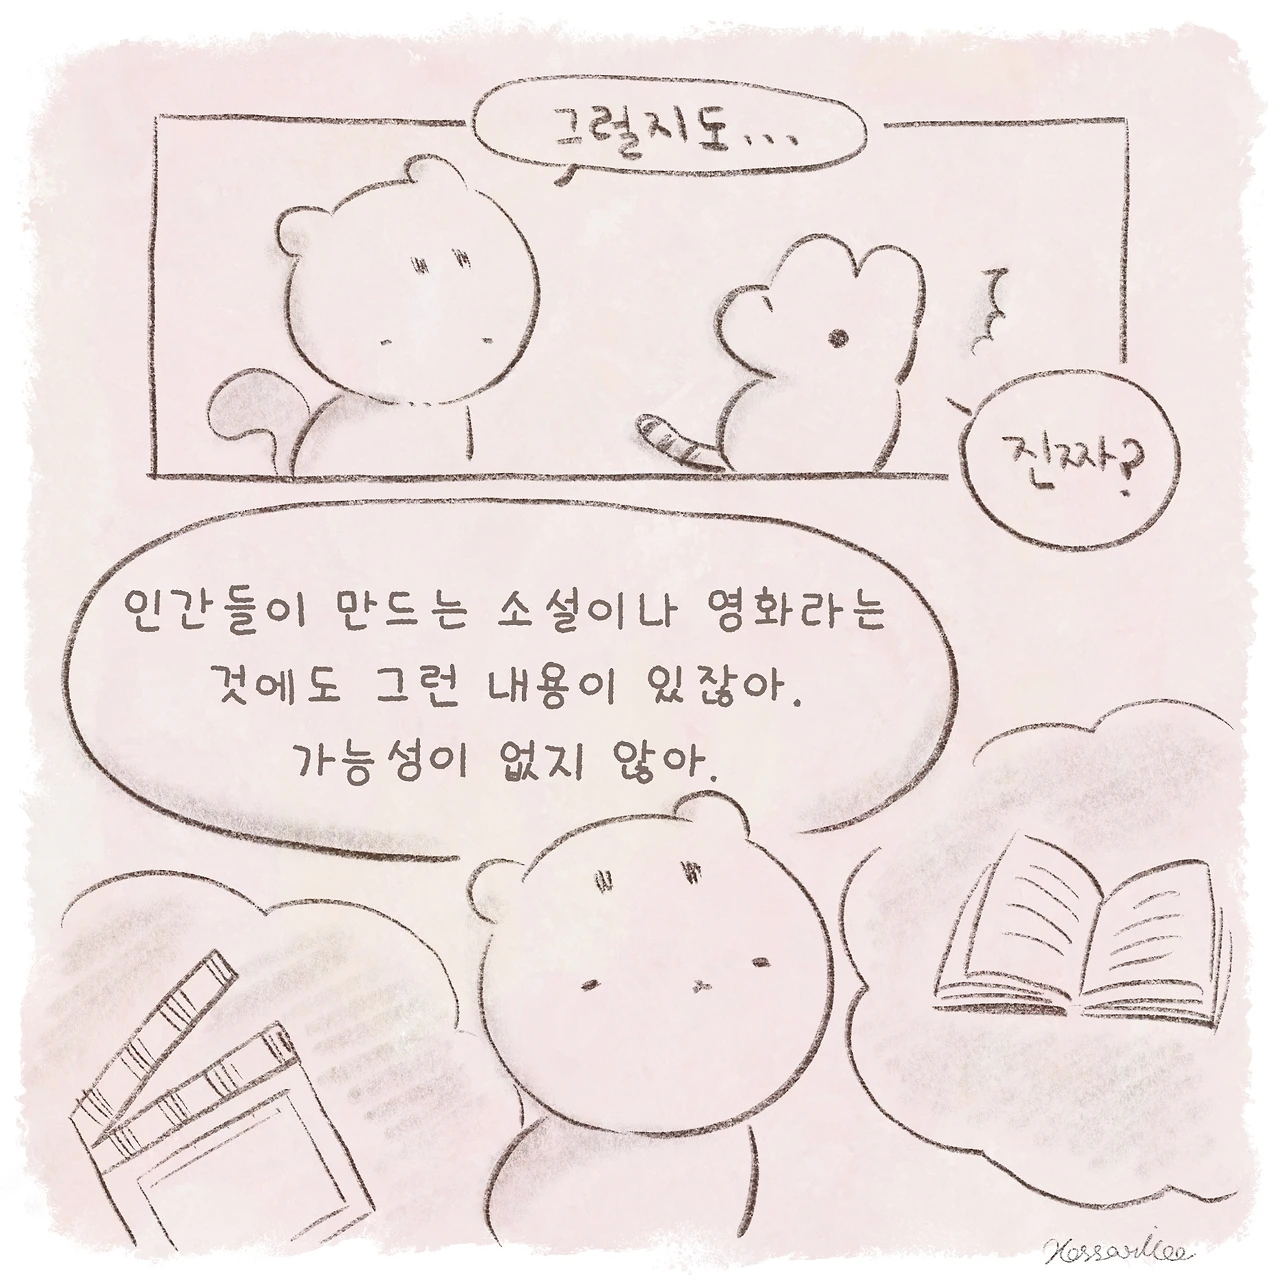 그럴지도...
진짜?
인간들이 만드는 소설이나 영화라는
것에도 그런 내용이 있잖아.
가능성이 없지 않아.